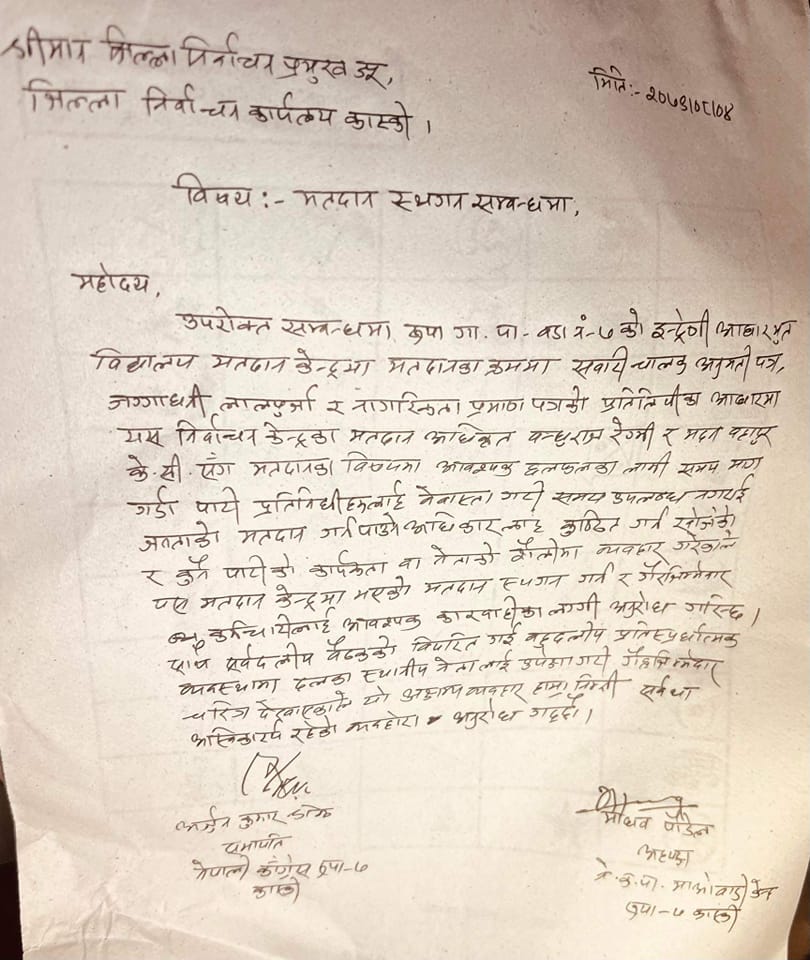 श्रीमान जिल्ला निर्वाचन प्रमुख ज्यू,
जिल्ला निर्वाचन कार्यलय कास्की ।
मिति:- २०७९/०८/०४
विषय:- मतदान स्थगन सम्बन्धमा,
महोदय,
उपरोक्त सम्बन्धमा रुपा गा.पा- वडा नं-७ को इन्द्रेणी आधारभुत
विद्यालय मतदान केन्द्रमा मतदानका क्रममा सवारी चालक अनुमती पत्र,
जग्गाधनी लालपुर्जा र नागरिकता प्रमाण पत्रको प्रतिलिपीका आधारमा
यस निर्वाचन केन्द्रका मतदान अधिकृत बन्धुराज रेग्मी र मदन बहादुर
के.सी. संग मतदानका विषयमा आवश्यक छलफलका लागी समय माग
गर्दा पार्टी प्रतिनिधीहरूलाई बेवास्ता गरी समय उपलब्ध नगराई
जनताको मतदान गर्न पाउने अधिकारलाई कुण्ठित गर्न खोजेको
र कुनै पार्टीको कार्यकर्ता वा नेताको शैलीमा व्यवहार गरेकाले
यस मतदान केन्द्रमा भएको मतदान स्थगन गर्न र गैरजिम्मेवार
कर्मचारीलाई आवश्यक कारवाहीका लागी अनुरोध गरिन्छ ।
साथै सर्वदलीय बैठकको विपरित गई बहुदलीय प्रतिस्पर्धात्मक
व्यवस्थामा दलका स्थानीय नेतालाई उपेक्षा गरी गैरजिम्मेदार
चरित्र देखाएकाले यो अक्षम्य व्यवहार हाम्रा निम्ती सर्वथा
अस्विकार्य रहेको व्यवहोरा अनुरोध गर्दछौं ।
अर्जुन कुमार
सभापति
नेपाली काँग्रेस रुपा-७
कास्की
माधव पौडेल
अध्यक्ष
ने.क.पा. माओवादी केन्द्र
रुपा-७ कास्की